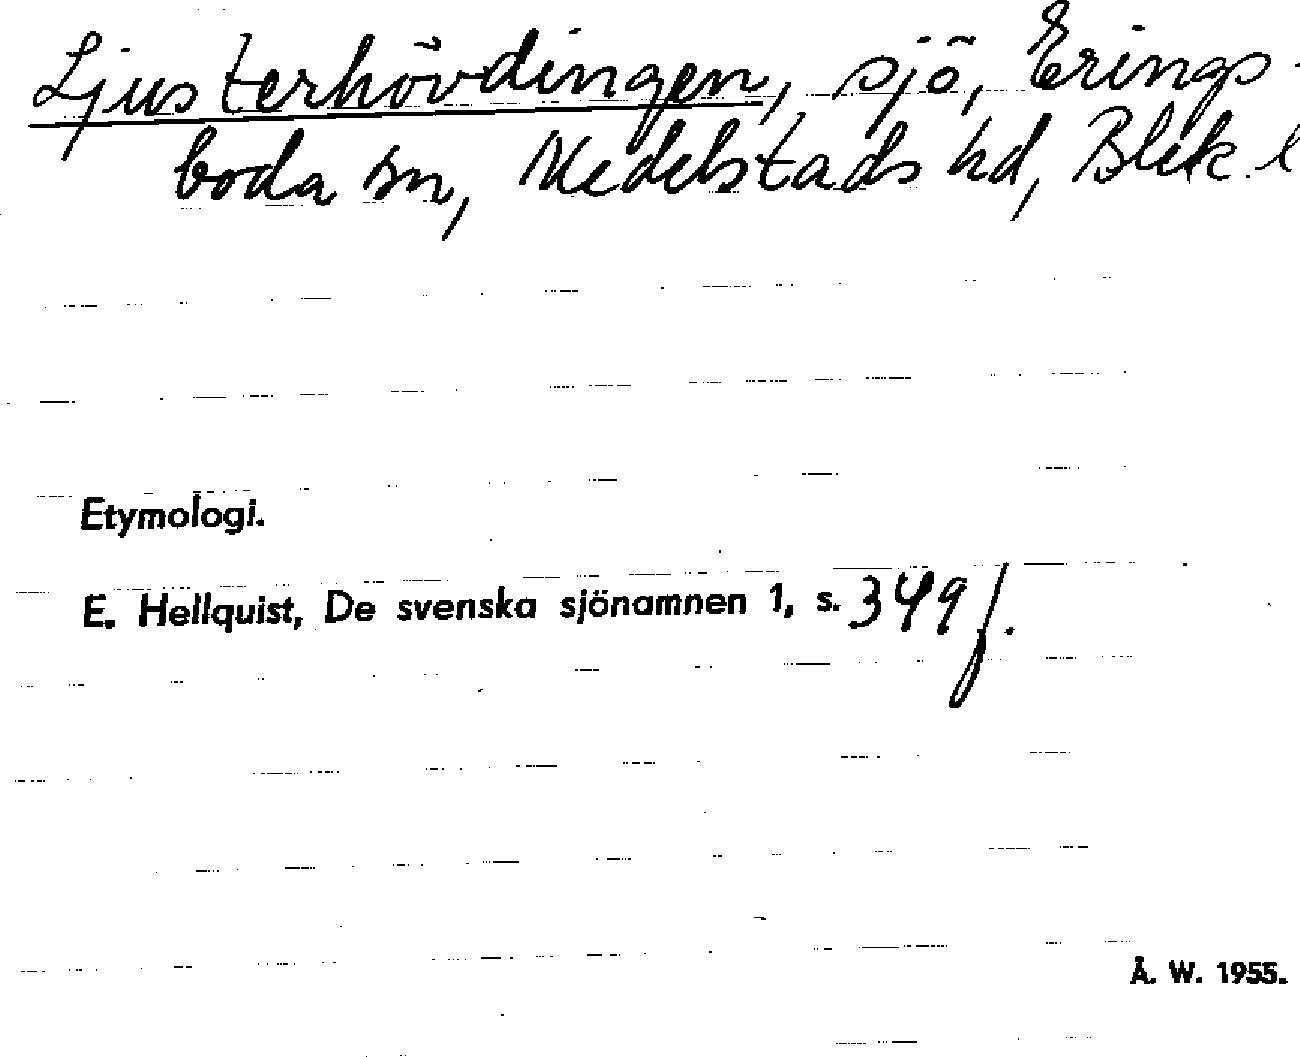 Ljusterhövdingen, sjö, Erings-
boda sn, Medelstads hd, Blek. l
Etymologi.
E. Hellquist, De svenska sjönamnen 1, s. 349 f.
Å. W. 1955.